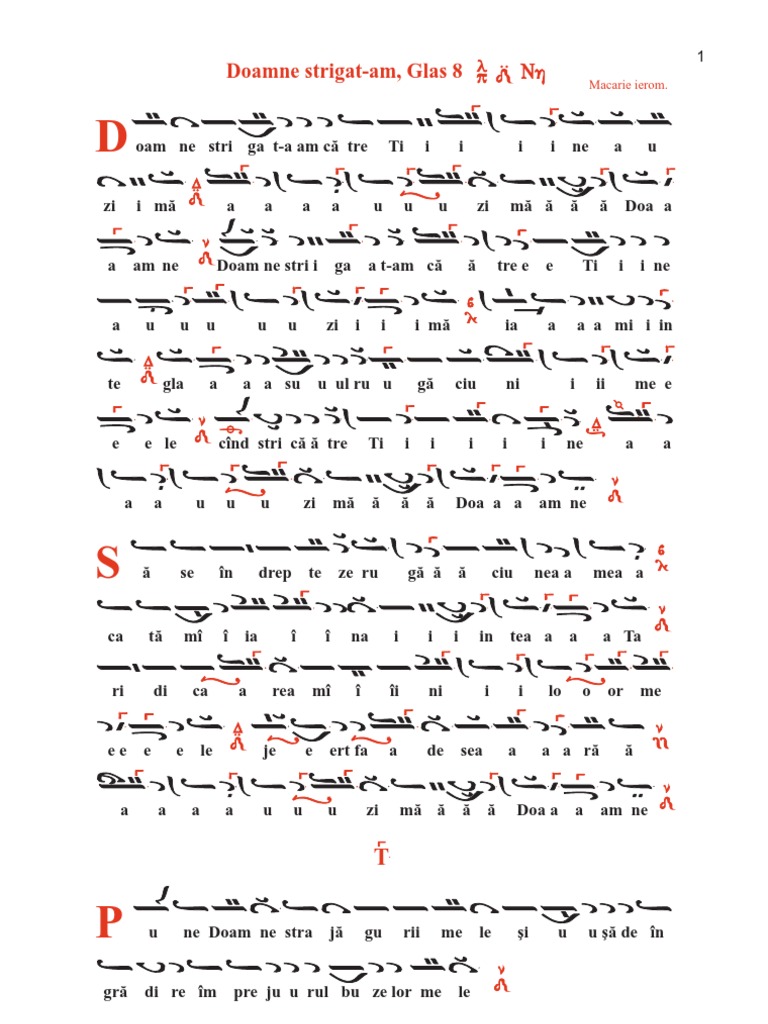 1
Doamne strigat-am, Glas 8 λ π Νη
Macarie ierom.
D oam ne stri ga t-a am că tre Ti i i i i ne a u
zi i mă a a a a u u u zi mă ă ă ă Doa a
a am ne Doam ne stri i ga a t-am că ă tre e e Ti i i ne
a u u u u u zi i i i mă ia a a a mi i in
te gla a a a su u ul ru u gă ciu ni i ii me e
e e le cînd stri că ă tre Ti i i i i i ne a a
a a u u u zi mă ă ă ă Doa a a am ne
S ă se în drep te ze ru gă ă ă ciu nea a mea a
ca tă mî î ia î î na i i i in tea a a a Ta
ri di ca a rea mî î îi ni i i lo o or me
e e e e le je e ert fa a de sea a a a ră ă
a a a a u u u zi mă ă ă ă Doa a a am ne
T
P u ne Doam ne stra jă gu rii me le şi u u şă de în
gră di re îm pre ju u rul bu ze lor me le